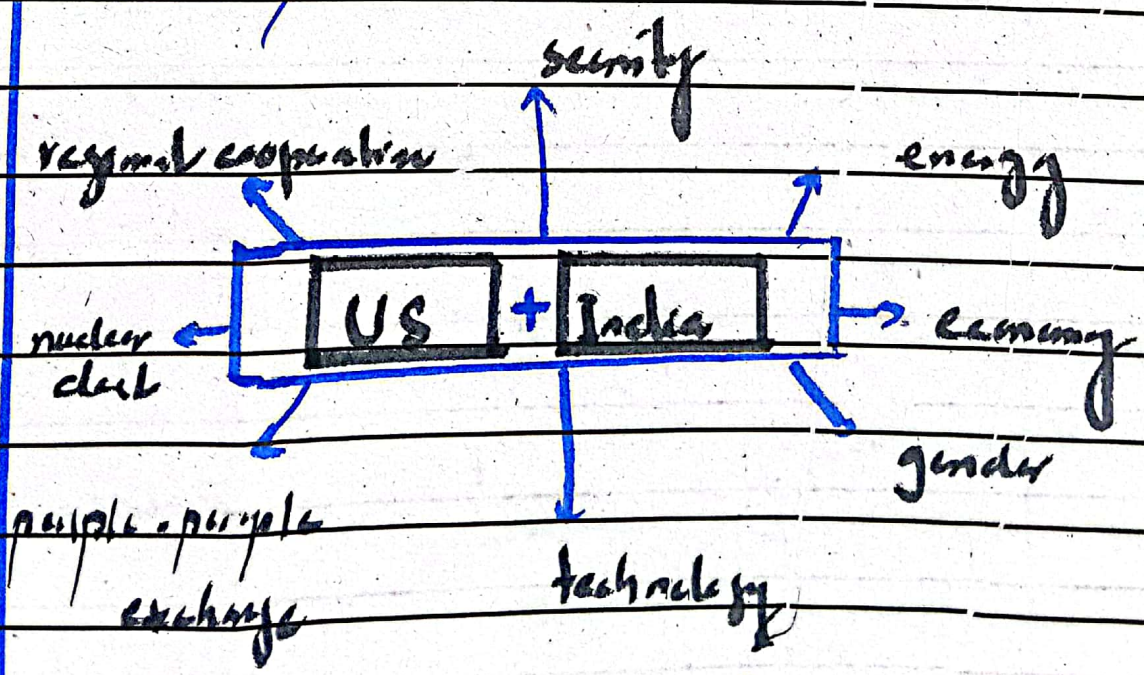 security
regional cooperation
energy
US + India
nuclear
deal
economy
gender
people-people
exchange
technology